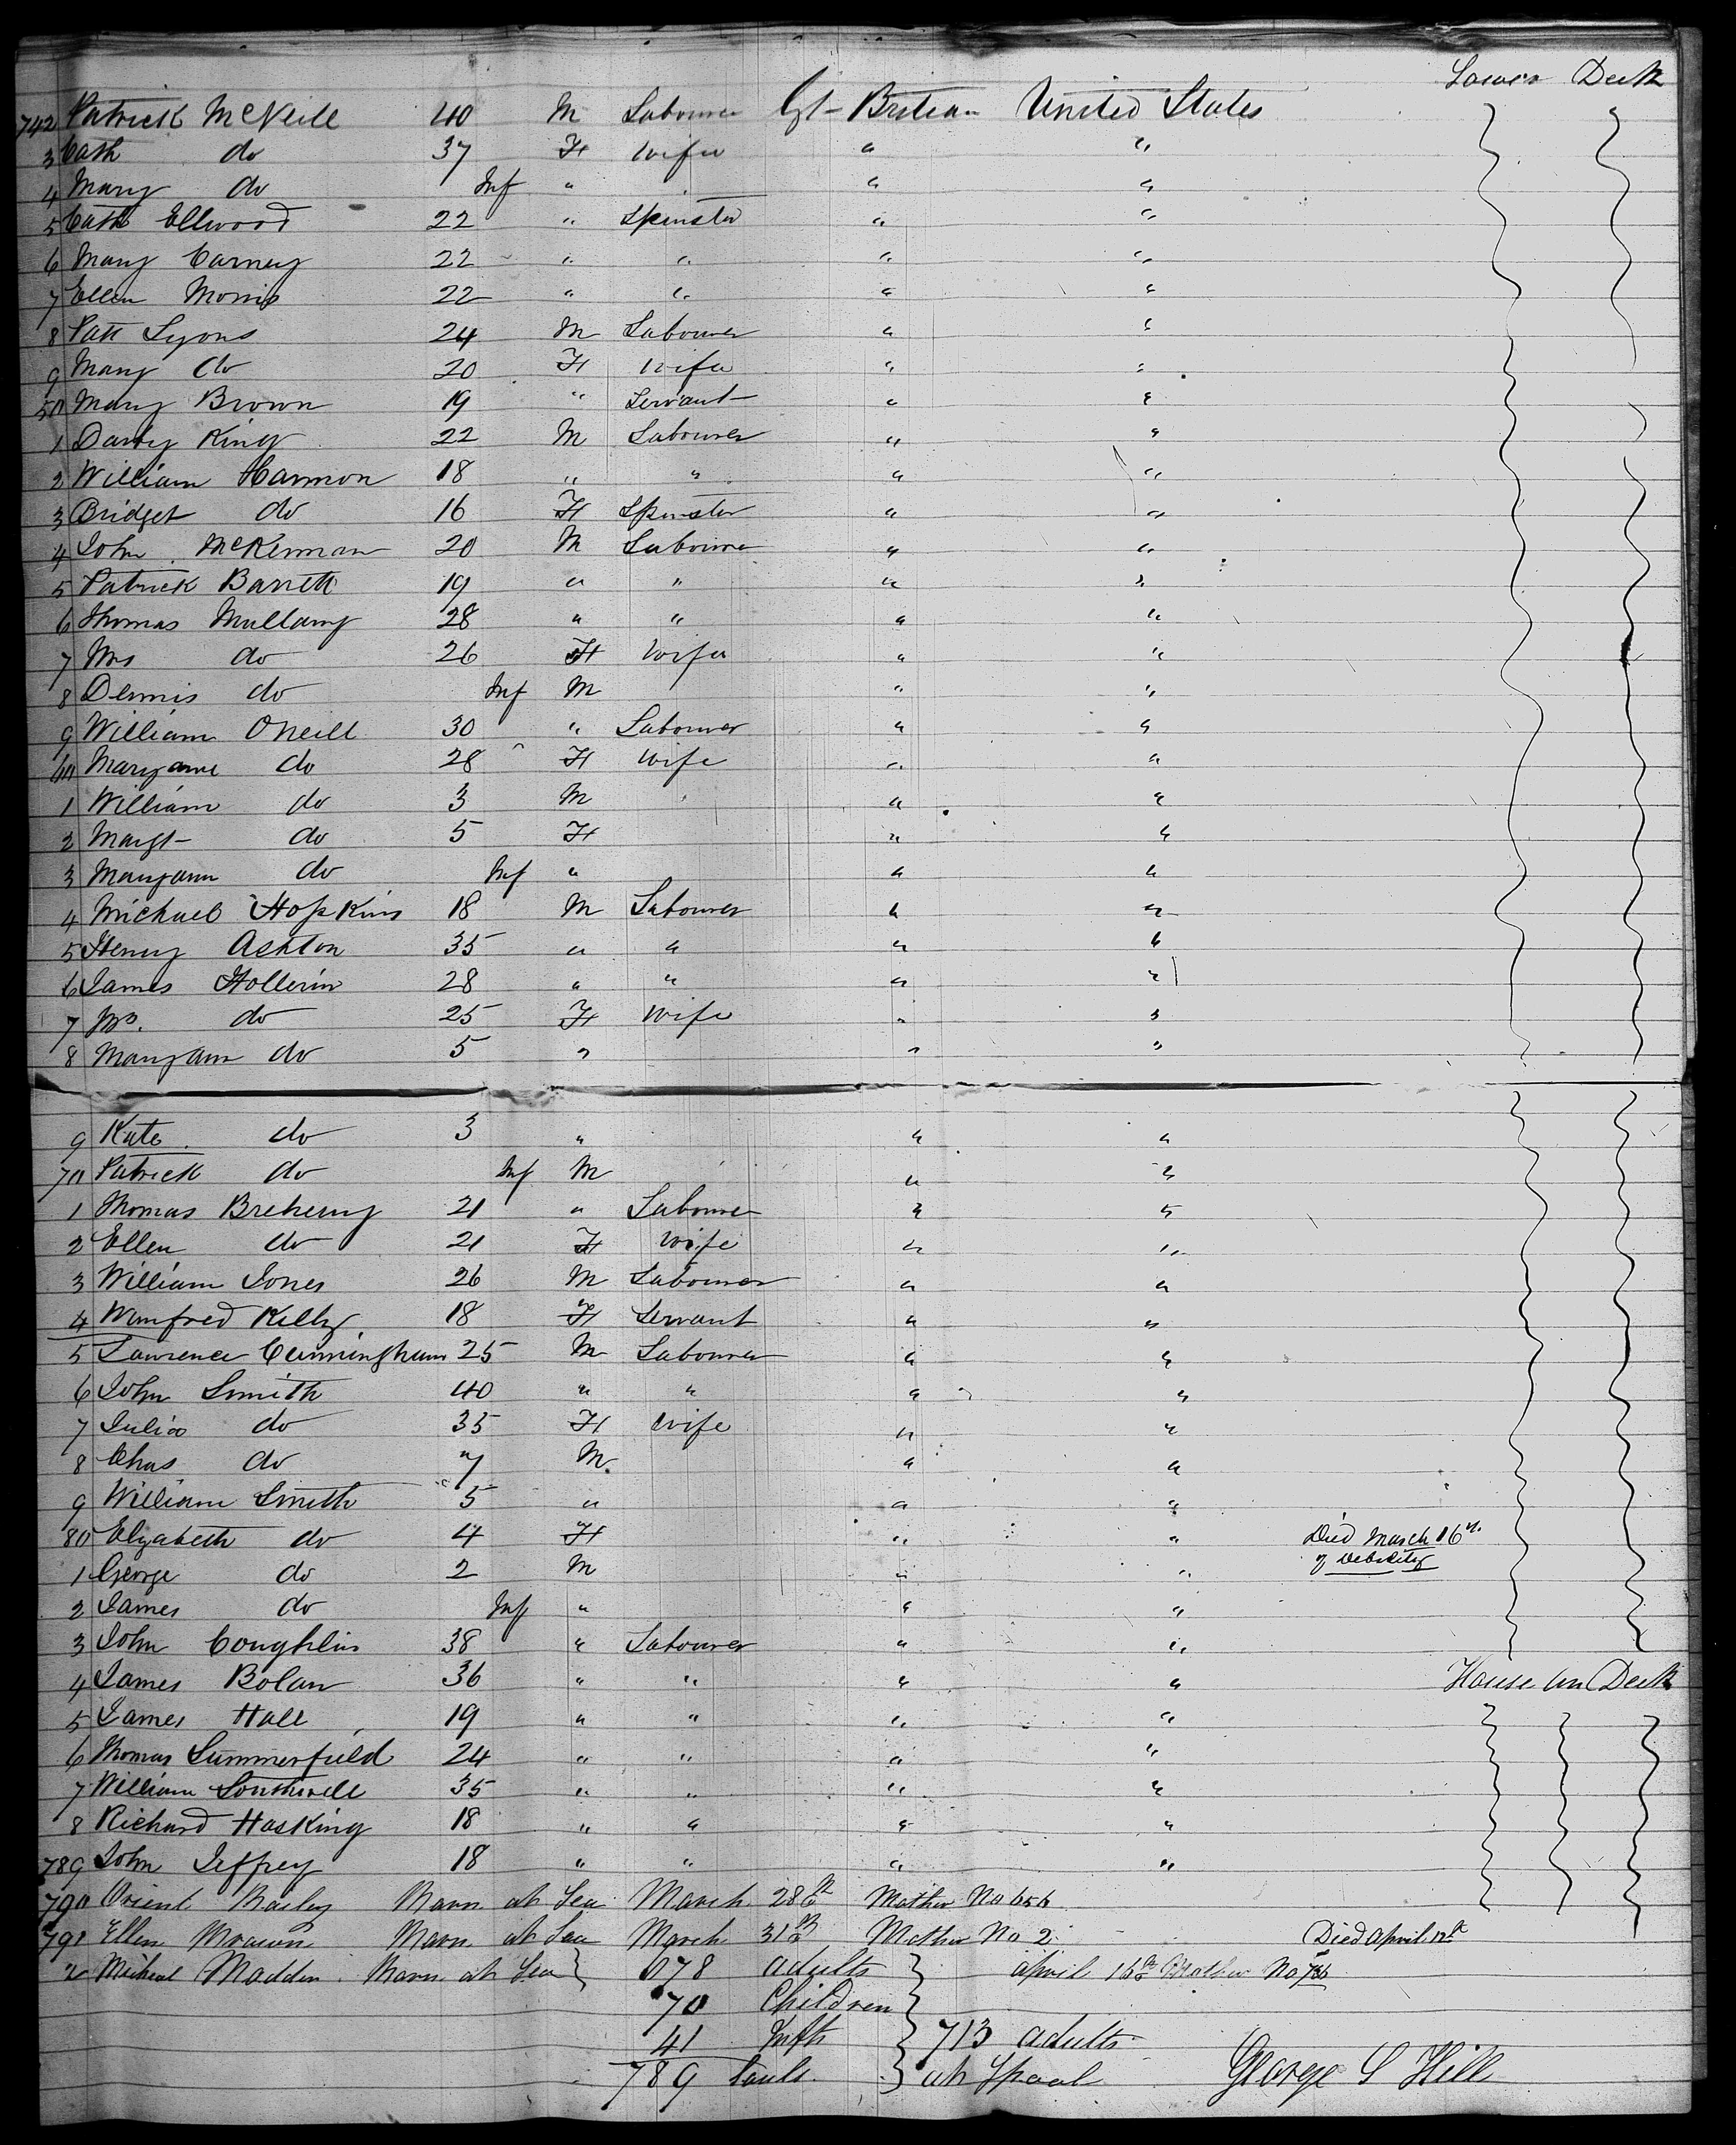 Lower Deck
742 Patrick McNeill 40 M Labourer Gt Britian United States
3 Cath do 37 F wife " "
4 Mary do Inf " " " "
5 Cath Ellwood 22 " Spinster " "
6 Mary Carney 22 " " " "
7 Ellen Morris 22 " " " "
8 Patt Lyons 24 M Labourer " "
9 Mary do 20 F wife " "
50 Mary Brown 19 " Servant " "
1 Darby King 22 M Labourer " "
2 William Harmon 18 " " " "
3 Bridget do 16 F Spinster " "
4 John McKernan 20 M Labourer " "
5 Patrick Barrett 19 " " " "
6 Thomas Mullany 28 " " " "
7 Mrs do 26 F wife " "
8 Dennis do Inf M " "
9 William ONeill 30 " Labourer " "
60 Maryanne do 28 F wife " "
1 William do 3 M " "
2 Margt do 5 F " "
3 Maryann do Inf " " "
4 Michael Hopkins 18 M Labourer " "
5 Henry Ashton 35 " " " "
6 James Hollerin 28 " " " "
7 Mrs. do 25 F wife " "
8 Maryann do 5 " " "
9 Kate do 3 " " "
70 Patrick do Inf M " "
1 Thomas Breheny 21 " Labourer " "
2 Ellen do 21 F wife " "
3 William Jones 26 M Labourer " "
4 Winfred Kelly 18 F Servant " "
5 Lawrence Cunningham 25 M Labourer " "
6 John Smith 40 " " " "
7 Julia do 35 F wife " "
8 Chas do 7 M. " "
9 William Smith 5 " " "
80 Elizabeth do 4 F " " Died March 16th
of Debility
1 George do 2 M " "
2 James do Inf " " "
3 John Coughlin 38 " Labourer " "
4 James Bolan 36 " " " " House on Deck
5 James Hall 19 " " " "
6 Thomas Summerfield 24 " " " "
7 William Southwell 35 " " " "
8 Richard Hosking 18 " " " "
789 John Jeffrey 18 " " " "
790 Orient Bailey Born at Sea March 28th Mother No 656
791 Ellen Born at Sea March 31st Mother No 2 Died April 12th
2 Micheal Madden Born at Sea } 678 adults } April 15th Mother No 736
70 Children
41 Infts } 713 adults
789 Souls } George S Hill